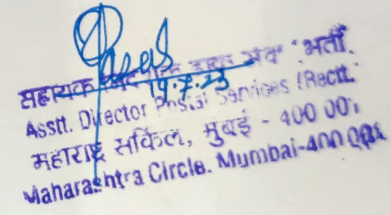 सहायक निदेशक डाक सेवा भर्ती.
19.7.23
Asstt. Director Postal Services (Rectt.
महाराष्ट्र सर्किल, मुंबई - 400 001
Maharashtra Circle. Mumbai-400 001